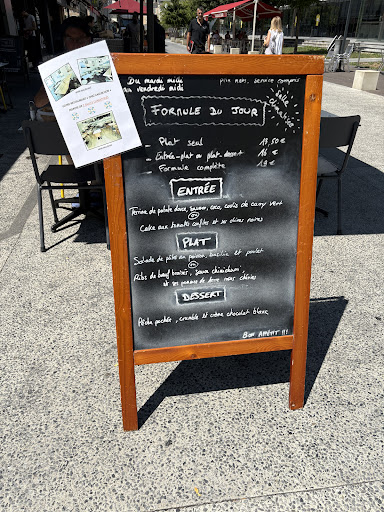 Du mardi midi
au vendredi midi
prix nets, service compris
salle climatisée
FORMULE DU JOUR
- Plat seul 13,50 €
- Entrée-plat ou plat-dessert 16 €
- Formule complète 19 €
ENTRÉE
Terrine de patate douce, saumon, coco, curry vert
ou
Cake aux tomates confites et olives noires
PLAT
Salade de pâtes au poivron, basilic et poulet
ou
Ribs de bœuf braisés, sauce chimichurri,
et ses pommes de terre
DESSERT
Pêche pochée, crumble et crème chocolat blanc
BON APPÉTIT !!!